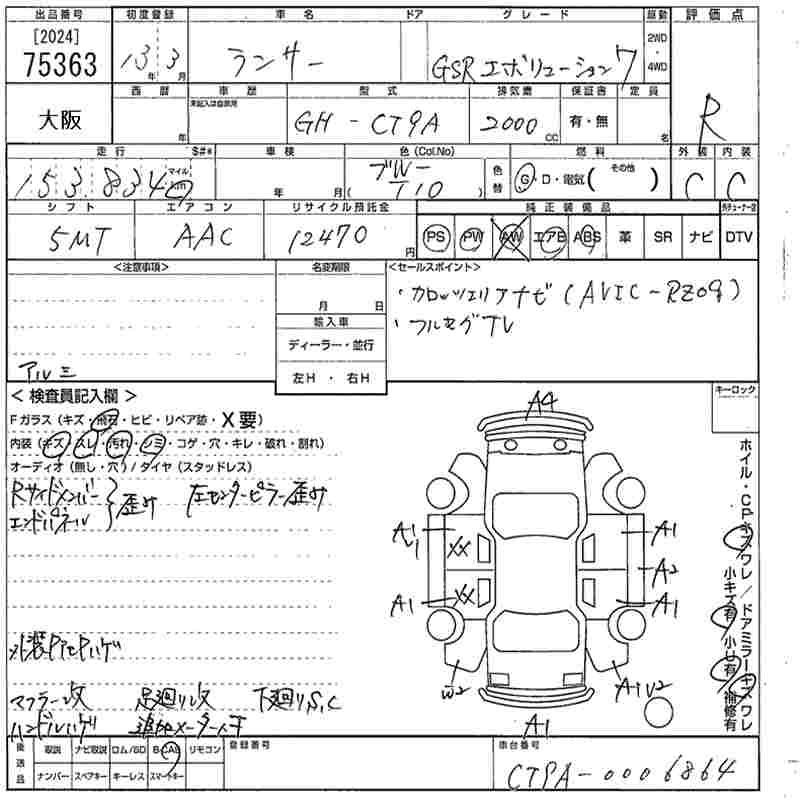 出品番号 初度登録 車名 ドア グレード 駆動 評価点
[2024] 75363 13年 3月 ランサー GSR エボリューション7 2WD・4WD R
西暦 車歴 型式 排気量 保証書 定員
大阪 年 未記入は自家用 GH-CT9A 2000cc 有・無 名
走行 $#* 車検 色(Col.No) 燃料 外装 内装
153,834 マイル km 年 月 ブルー (T10) 色替 G・D・電気( その他 ) C C
シフト エアコン リサイクル預託金 純正装備品
5MT AAC 12470円 PS PW AW エアB ABS 革 SR ナビ DTV
<注意事項> 名変期限 <セールスポイント>
月 日
・カロッツェリアナビ(AVIC-RZ09)
・フルセグTV
輸入車
ディーラー・並行
左H・右H
アルミ
<検査員記入欄> キーロック
Fガラス(キズ・飛石・ヒビ・リペア跡・X要)
内装(キズ・スレ・汚れ・シミ・コゲ・穴・キレ・破れ・割れ)
オーディオ(無し・穴)/タイヤ(スタッドレス)
Rサイドメンバー エンドパネル }歪み 左センターピラー歪み
外装PアセPハゲ
マフラー改 足廻り改 下廻りS,C
ハンドルハゲ 追加メーター
A4
A1 XX A1
A2
A1 XX A1
W2 A1U2
A1
ホイル・CPキズワレ/ドアミラーキズワレ
小キズ有 小U有 補修有
後送品 取説 ナビ取説 ロム/SD B-CAS リモコン 登録番号 車台番号
ナンバー スペアキー キーレス スマートキー CT9A-0006864